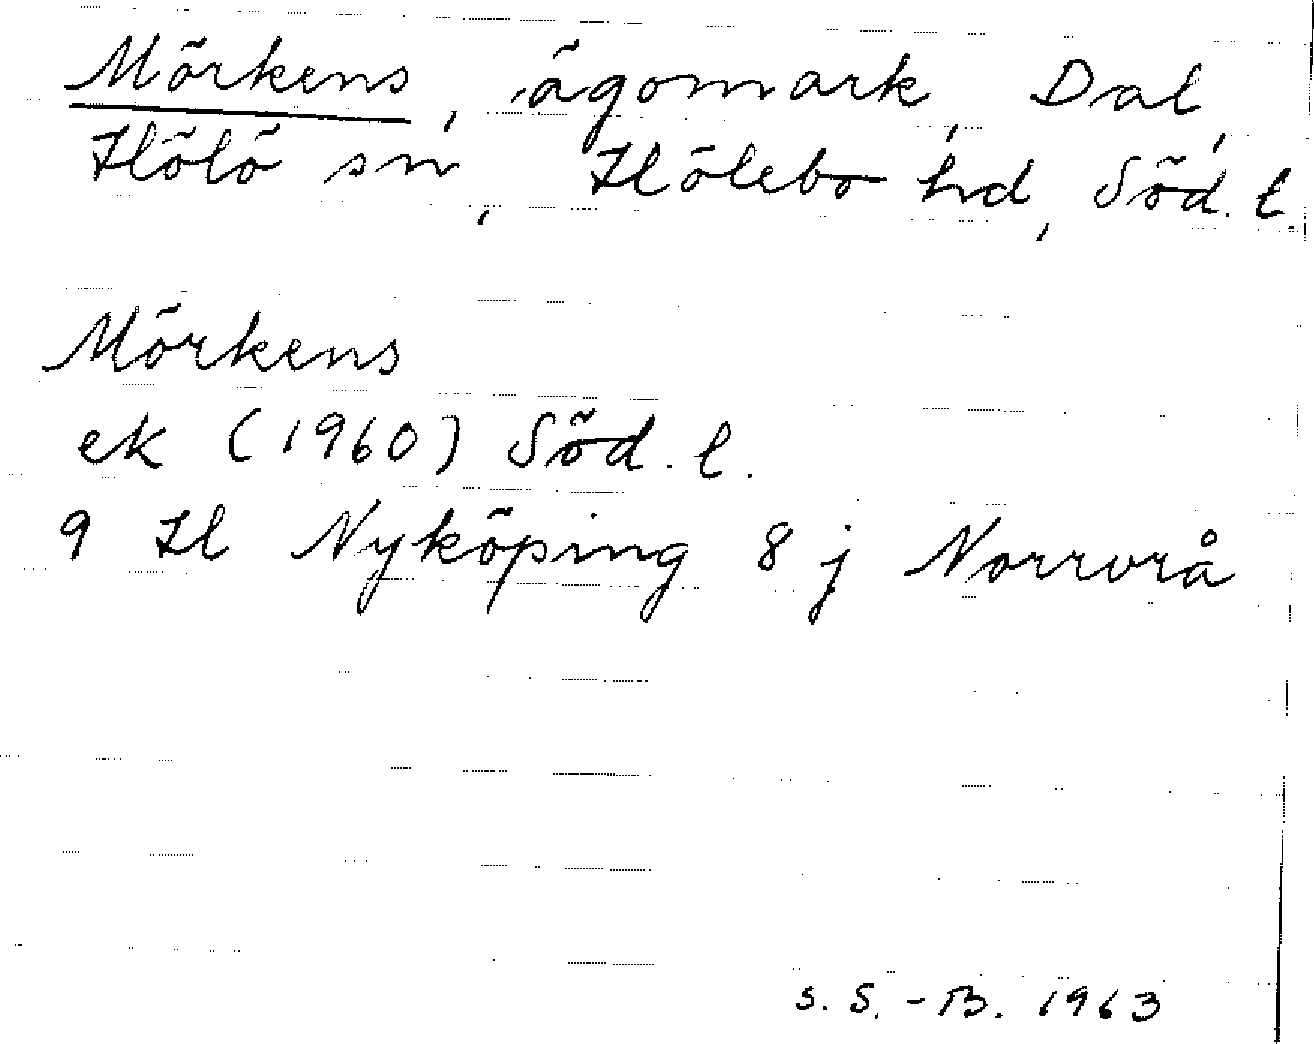 Mörkens, ägomark, Dal,
Hölö sn, Hölebo hd, Söd. l.
Mörkens
ek (1960) Söd. l.
9 H Nyköping 8 j Norrvrå
S. S. - B. 1963